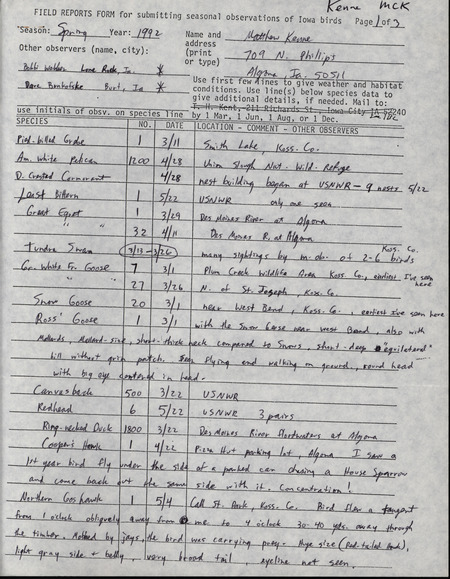 Kenne MCK
FIELD REPORTS FORM for submitting seasonal observations of Iowa birds Page 1 of 3
Season: Spring Year: 1992 Name and Matthew Kenne
Other observers (name, city): address
(print 709 N. Phillips
or type)
Algona, Ia. 50511
Bobbi Lone Rock, Ia. *
Dave Burt, Ia *
Use first few lines to give weather and habitat
conditions. Use line(s) below species data to
give additional details, if needed. Mail to:
T. H. Kent, 211 Richards St., Iowa City IA 52240
use initials of obsv. on species line by 1 Mar, 1 Jun, 1 Aug, or 1 Dec.
SPECIES NO. DATE LOCATION - COMMENT - OTHER OBSERVERS
Pied-billed Grebe 1 3/11 Smith Lake, Koss. Co.
Am. White Pelican 1200 4/28 Union Slough Nat. Wild. Refuge
D. Crested Cormorant 4/28 nest building began at USNWR - 9 nests 5/22
Least Bittern 1 5/22 USNWR only one seen
Great Egret 1 3/29 Des Moines River at Algona
" " 32 4/11 Des Moines R. at Algona
Tundra Swan 3/13-3/26 many sightings by m.ob. of 2-6 birds Koss. Co.
Gr. White Fr. Goose 7 3/1 Plum Creek Wildlife Area Koss Co., earliest I've seen here
" 27 3/26 N. of St. Joseph, Koss. Co.
Snow Goose 20 3/1 near West Bend, Koss. Co. earliest I've seen here
Ross' Goose 1 3/1 with the Snow Geese near West Bend, also with
Mallards, Mallard-size, short-thick neck compared to Snows, short-deep "equilateral"
bill without grin patch. Seen flying and walking on ground, round head
with big eye centered in head.
Canvasback 500 3/22 USNWR
Redhead 6 5/22 USNWR 3 pairs
Ring-necked Duck 1800 3/22 Des Moines River at Algona
Cooper's Hawk 1 4/22 Pizza Hut parking lot, Algona I saw a
1st year bird fly under the side of a parked car chasing a House Sparrow
and come back out the same side with it. Concentration!
Northern Goshawk 1 5/4 Call St. Park, Koss. Co. Bird flew a tangent
from 1 o'clock obliquely away from me to 4 o'clock 30-40 yds. away through
the timber. Mobbed by jays, the bird was carrying prey. Huge size (Red-tailed Hawk),
light gray side + belly, very broad tail, eyeline not seen.